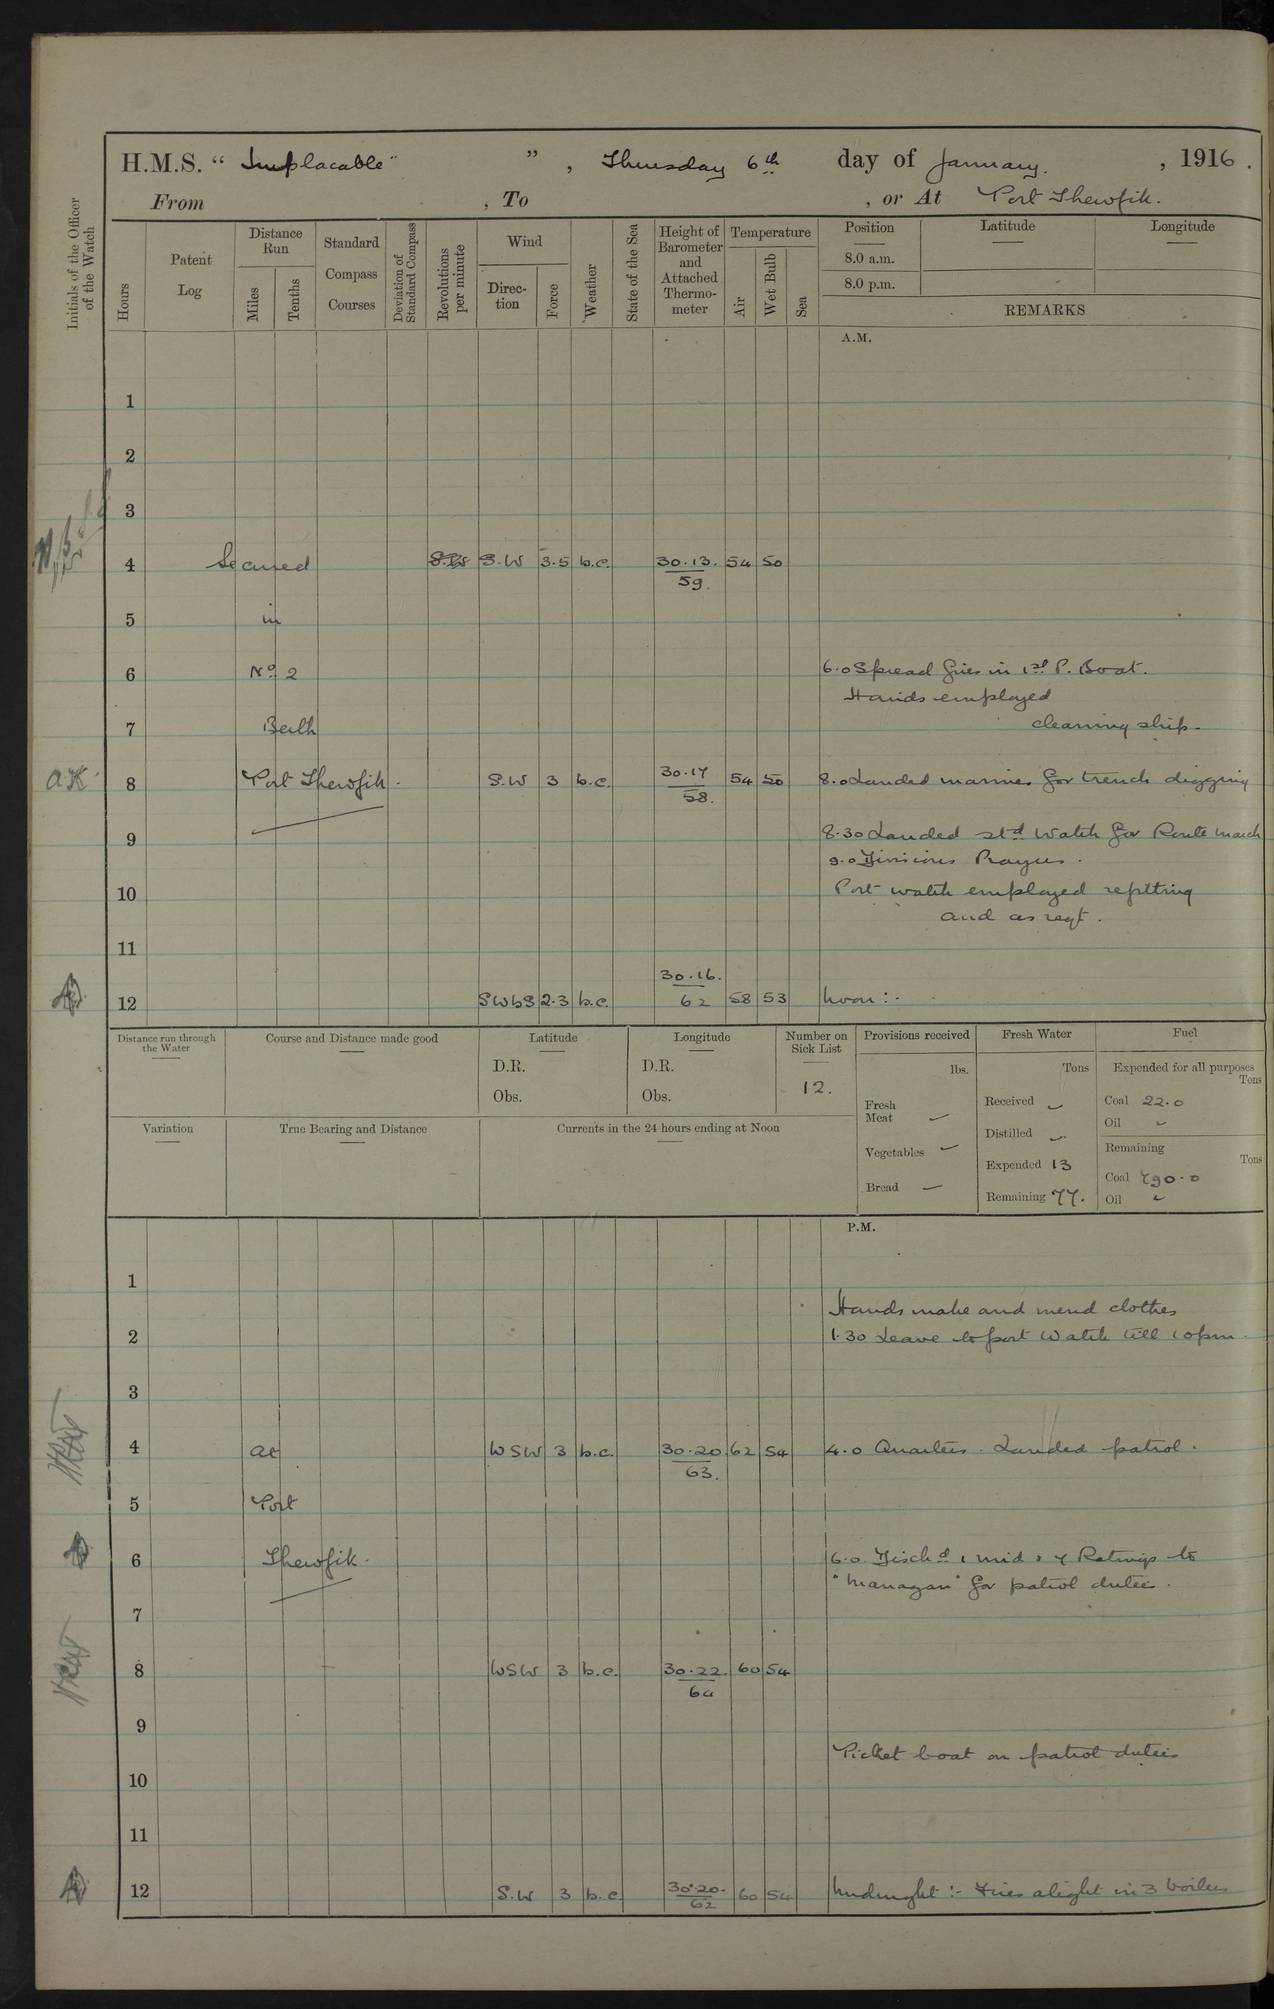 H.M.S. “ Implacable” ” , Thursday 6th day of January. , 1916.
From , To , or At Port Thewfik.
Initials of the Officer of the Watch
Hours
Patent Log
Distance Run
Miles
Tenths
Standard Compass Courses
Deviation of Standard Compass
Revolutions per minute
Wind
Direction
Force
Weather
State of the Sea
Height of Barometer and Attached Thermometer
Temperature
Air
Wet Bulb
Sea
Position
8.0 a.m.
8.0 p.m.
Latitude
Longitude
REMARKS
A.M.
1
2
3
4 Secured S.W S.W 3.5 b.c. 30.13. 54 50
59.
5 in
6 No. 2 6.0 Spread fires in 1st P. Boat.
Hands employed
7 Berth cleaning ship.
8 Port Thewfik. S.W 3 b.c. 30.17 54 50 8.0 Landed marines for trench digging
58.
8.30 Landed stbd Watch for Route march
9
9.0 Divisions Prayers.
10 Port watch employed refitting
and as reqt.
11
30.16.
12 SWbS 2.3 b.c. 62 58 53 Noon :-
Distance run through the Water
Course and Distance made good
Latitude
D.R.
Obs.
Longitude
D.R.
Obs.
Number on Sick List
12.
Provisions received
lbs.
Fresh Meat –
Vegetables –
Bread –
Fresh Water
Tons
Received –
Distilled –
Expended 13
Remaining 77.
Fuel
Expended for all purposes
Tons
Coal 22.0
Oil –
Remaining
Tons
Coal 790.0
Oil –
Variation
True Bearing and Distance
Currents in the 24 hours ending at Noon
P.M.
1
Hands make and mend clothes
2 1.30 Leave to port Watch till 10pm.
3
4 at WSW 3 b.c. 30.20 62 54 4.0 Quarters. Landed patrol.
63.
5 Port
6 Thewfik. 6.0. Dischd 1 mid & 7 Ratings to
for patrol duties.
7
8 WSW 3 b.c. 30.22. 60 54
64
9
Picket boat on patrol duties
10
11
12 S.W 3 b.c. 30.20. 60 54 Midnight :- Fires alight in 3 boilers
62